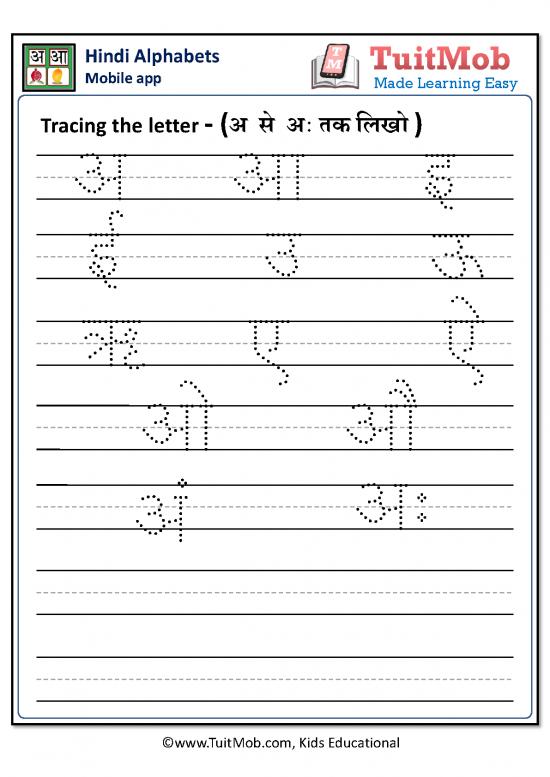 अ आ
Hindi Alphabets
Mobile app
TM
TuitMob
Made Learning Easy
Tracing the letter - (अ से अः तक लिखो )
अ आ इ
ई उ ऊ
ऋ ए ऐ
ओ औ
अं अः
©www.TuitMob.com, Kids Educational